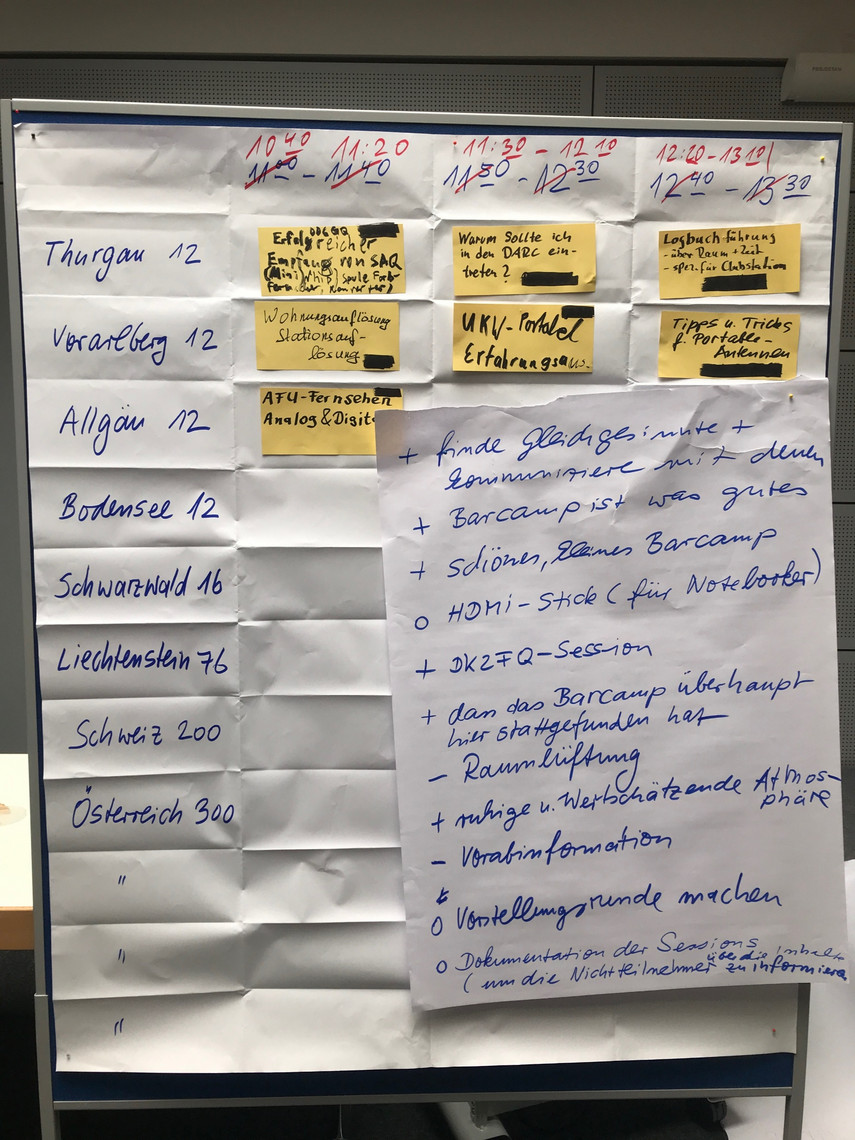 10 40 11:20
11 00 - 11 40
11:30 - 12 10
11 50 - 12 30
12:20-13 10
12 40 - 13 30
Thurgau 12
Erfolgreicher
Empfang von SAQ
(Mini Whip) Spule
Warum sollte ich
in den DARC ein-
treten?
Logbuchführung
- über Raum + Zeit
- spez. für Clubstation
Vorarlberg 12
Wohnungsauflösung
Stationsauf-
lösung
UKW-Portabel
Erfahrungsaus.
Tipps u. Tricks
f. Portable-
Antennen
Allgäu 12
AFU-Fernsehen
Analog & Digit
Bodensee 12
Schwarzwald 16
Liechtenstein 76
Schweiz 200
Österreich 300
"
"
"
+ finde Gleichgesinnte +
kommuniziere mit denen
+ Barcamp ist was gutes
+ schönes, kleines Barcamp
o HDMI-Stick (für Notebooker)
+ DK2FQ-Session
+ dass das Barcamp überhaupt
hier stattgefunden hat
- Raumlüftung
+ ruhige u. Wertschätzende Atmos-
phäre
- Vorabinformation
o Vorstellungsrunde machen
o Dokumentation der Sessions
(um die Nichtteilnehmer über die Inhalte
zu informieren